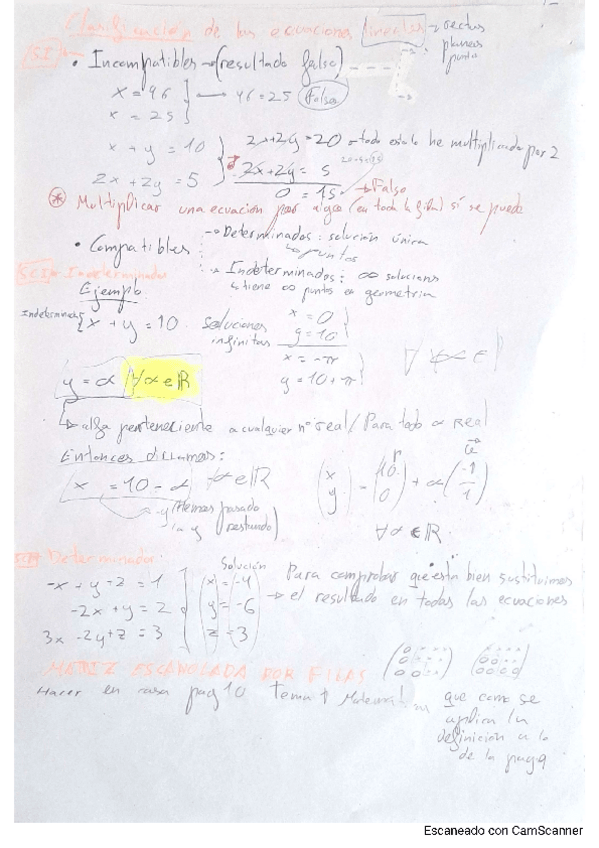 Clasificación de las ecuaciones lineales → rectas
planos
punto
(SI)
• Incompatibles → (resultado falso)
x = 46
x = 25
→ 46 = 25 (Falso)
x + y = 10
2x + 2y = 5
2x + 2y = 20 → todo esto lo he multiplicado por 2
2x + 2y = 5
0 = 15 → Falso
* Multiplicar una ecuacion por algo (en toda la fila) sí se puede
• Compatibles
→ Determinados: solución única
↳ puntos
→ Indeterminados: ∞ soluciones
↳ tiene ∞ puntos en geometría
(SCI) Indeterminados
Ejemplo
Indeterminado { x + y = 10
soluciones infinitas
x = 0
y = 10
x = -π
y = 10 + π
y = α ∀α ∈ ℝ
↳ alfa perteneciente a cualquier nº real / Para todo α real
Entonces diríamos:
x = 10 - α ∀α ∈ ℝ
-y (Hemos pasado la y restando)
(x y) = (10 0) + α (-1 1)
∀α ∈ ℝ
Determinado
-x + y - z = 1
-2x + y = 2
3x - 2y + z = 3
Solución
x = -4
y = -6
z = 3
Para comprobar que está bien sustituimos
→ el resultado en todas las ecuaciones
MATRIZ ESCALONADA POR FILAS
Hacer en casa pag 10 tema 1
que como se
aplica la
definición a la
de la pag 9
Escaneado con CamScanner